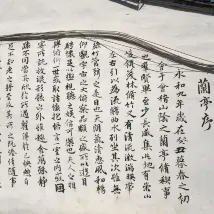 蘭亭序
永和九年歲在癸丑暮春之初
會于會稽山陰之蘭亭脩稧事
也羣賢畢至少長咸集此地有崇山
峻領茂林脩竹又有清流激湍暎帶
左右引以為流觴曲水列坐其次雖無
絲竹管弦之是日也天朗氣清惠風和暢
仰觀宇宙之大俯察品類之盛所以遊目
騁懷足以極視聽之娛信可樂也夫人之相
與俯仰一世或取諸懷抱悟言一室之內
寄所託放浪形骸之外雖趣舍萬殊靜躁
不同當其欣於所遇暫得於己快然自足
不知老之將至及其所之既倦情隨事